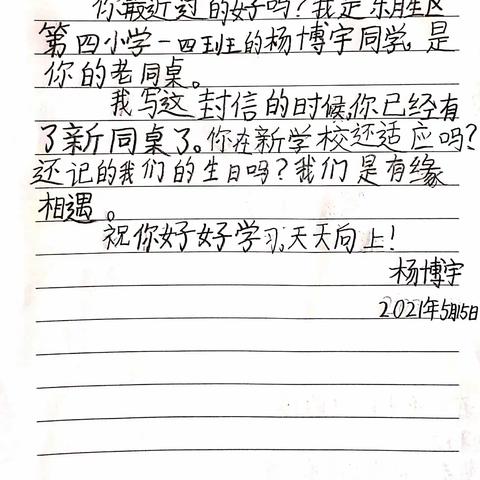 你最近过的好吗？我是东胜区
第四小学一四班的杨博宇同学，是
你的老同桌。
我写这封信的时候，你已经有
了新同桌了。你在新学校还适应吗？
还记的我们的生日吗？我们是有缘
相遇。
祝你好好学习，天天向上！
杨博宇
2021年5月15日